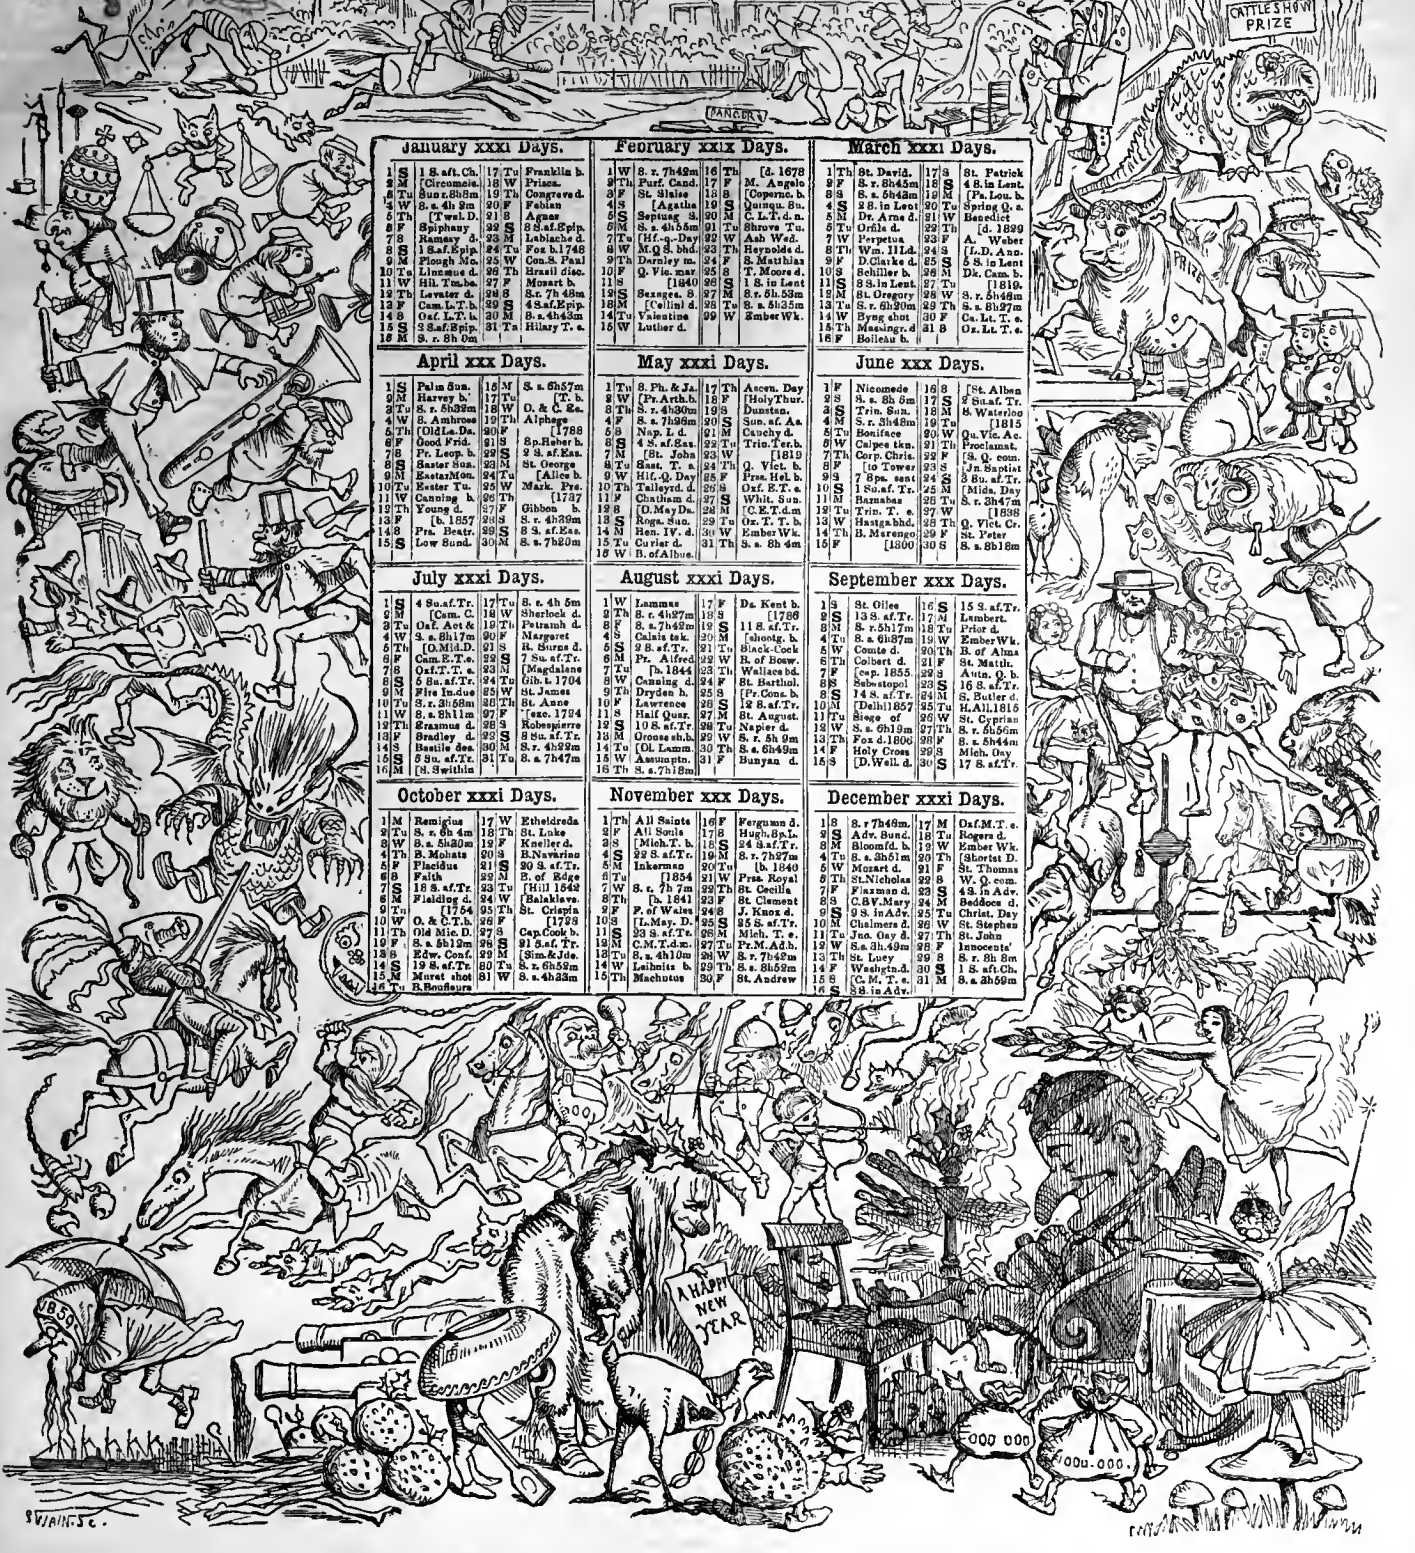 CATTLE SHOW
PRIZE
DANGER
PRIZE
January xxxi Days.
1 S 1 S. aft. Ch.
2 M [Circumcis.
3 Tu Sun r. 8h8m
4 W S. s. 4h 2m
5 Th [Twel. D.
6 F Epiphany
7 S Ramsay d.
8 S 1 S. af. Epip.
9 M Plough Mo.
10 Tu Linnæus d.
11 W Hil. Tm. be.
12 Th Lavater d.
13 F Cam. L. T. b.
14 S Oxf. L. T. b.
15 S 2 S. af. Epip.
16 M S. r. 8h 0m
17 Tu Franklin b.
18 W Prisca.
19 Th Congreve d.
20 F Fabian
21 S Agnes
22 S 3 S. af. Epip.
23 M Labiache d.
24 Tu Fox b. 1748
25 W Con. S. Paul
26 Th Brazil disc.
27 F Mozart b.
28 S S. r. 7h 48m
29 S 4 S. af. Epip.
30 M S. s. 4h43m
31 Tu Hilary T. e.
February xxix Days.
1 W S. r. 7h42m
2 Th Purf. Cand.
3 F St. Blaise
4 S [Agatha
5 S Septuag S.
6 M S. s. 4h55m
7 Tu [Hf.-q.-Day
8 W M. Q S. bhd.
9 Th Darnley m.
10 F Q. Vic. mar
11 S [1840
12 S Sexages. S.
13 M [Cellini d.
14 Tu Valentine
15 W Luther d.
16 Th [d. 1678
17 F M. Angelo
18 S [Copernc b.
19 S Quinqu. Su.
20 M C. L. T. d. n.
21 Tu Shrove Tu.
22 W Ash Wed.
23 Th Reynolds d.
24 F S. Matthias
25 S T. Moore d.
26 S 1 S. in Lent
27 M S. r. 6h. 53m
28 Tu S. s. 5h35m
29 W Ember Wk.
March xxxi Days.
1 Th St. David.
2 F S. r. 6h45m
3 S S. s. 5h43m
4 S 2 S. in Lent
5 M Dr. Arne d.
6 Tu Orfila d.
7 W Perpetua
8 Th Wm. III d.
9 F D. Clarke d.
10 S Schiller b.
11 S 3 S. in Lent.
12 M St. Gregory
13 Tu S. r. 6h20m
14 W Byng shot
15 Th Massingr. d
16 F Boileau b.
17 S St. Patrick
18 S 4 S. in Lent.
19 M [Ps. Lou. b.
20 Tu Spring Q. s.
21 W Benedict
22 Th [d. 1829
23 F A. Weber
24 S [L. D. Ann.
25 S 5 S. in Lent
26 M Dk. Cam. b.
27 Tu [1819.
28 W S. r. 5h48m
29 Th S. s. 6h27m
30 F Ca. Lt. T. e.
31 S Ox. Lt T. e.
April xxx Days.
1 S Palm Sun.
2 M Harvey b.
3 Tu S. r. 5h32m
4 W S. Ambrose
5 Th [Old La. Da.
6 F Good Frid.
7 S Pr. Leop. b.
8 S Easter Sun.
9 M Easter Mon.
10 Tu Easter Tu.
11 W Canning b.
12 Th Young d.
13 F [b. 1857
14 S Prs. Beatr.
15 S Low Sund.
16 M S. s. 6h57m
17 Tu [T. b.
18 W O. & C. Ea.
19 Th Alphege
20 F [1788
21 S Bp. Heber b.
22 S 2 S. af. Eas.
23 M St. George
24 Tu [Alice b.
25 W Mark. Prs.
26 Th [1737
27 F Gibbon b.
28 S S. r. 4h39m
29 S 3 S. af. Eas.
30 M S. s. 7h20m
May xxxi Days.
1 Tu S. Ph. & Ja.
2 W [Pr. Arth. b.
3 Th S. r. 4h30m
4 F S. s. 7h26m
5 S Nap. I. d
6 S 4 S. af. Eas.
7 M [St. John
8 Tu East. T. e.
9 W Hlf.-Q. Day
10 Th Talleyrd. d.
11 F Chatham d.
12 S [O. May Da.
13 S Roga. Sun.
14 M Hen. IV. d.
15 Tu Cuvier d.
16 W B. of Albue.
17 Th Ascen. Day
18 F [Holy Thur.
19 S Dunstan.
20 S Sun. af. As.
21 M Cauchy d.
22 Tu Trin. Ter. b.
23 W [1819
24 Th Q. Vict. b.
25 F Prss. Hel. b.
26 S Oxf. E. T. e.
27 S Whit. Sun.
28 M [C. E. T. d. m
29 Tu Ox. T. T. b.
30 W Ember Wk.
31 Th S. s. 8h 4m
June xxx Days.
1 F Nicomede
2 S S. s. 8h 6m
3 S Trin. Sun.
4 M S. r. 3h48m
5 Tu Boniface
6 W Calpee tkn.
7 Th Corp. Chris.
8 F [to Tower
9 S 7 Bps. sent
10 S 1 Su. af. Tr.
11 M Barnabas
12 Tu Trin. T. e.
13 W Hastgs bhd.
14 Th B. Marengo
15 F [1800
16 S [St. Alban
17 S 2 Su. af. Tr.
18 M S. Waterloo
19 Tu [1815
20 W Qu. Vic. Ac.
21 Th Proclamat.
22 F [S. Q. com.
23 S [Jn. Baptist
24 S 3 Su. af. Tr.
25 M [Mids. Day
26 Tu S. r. 3h47m
27 W [1838
28 Th Q. Vict. Cr.
29 F St. Peter
30 S S. s. 8h18m
July xxxi Days.
1 S 4 Su. af. Tr.
2 M [Cam. C.
3 Tu Oxf. Act &
4 W S. s. 8h17m
5 Th [O. Mid. D.
6 F Cam. E. T. e.
7 S Oxf. T. T. e.
8 S 5 Su. af. Tr.
9 M Fire In. due
10 Tu S. r. 3h58m
11 W S. s. 8h11m
12 Th Erasmus d.
13 F Bradley d.
14 S Bastile des.
15 S 6 Su. af. Tr.
16 M [S. Swithin
17 Tu S. r. 4h 5m
18 W Sherlock d.
19 Th Petrarch d.
20 F Margaret
21 S R. Burns d.
22 S 7 Su. af. Tr.
23 M [Magdalene
24 Tu Gib. t. 1704
25 W St. James
26 Th St. Anne
27 F [exc. 1794
28 S Robespierre
29 S 8 Su. af. Tr.
30 M S. r. 4h22m
31 Tu S. s. 7h47m
August xxxi Days.
1 W Lammas
2 Th S. r. 4h27m
3 F S. s. 7h42m
4 S Calais tak.
5 S 9 S. af. Tr.
6 M Pr. Alfred
7 Tu [b. 1844
8 W Canning d.
9 Th Dryden b.
10 F Lawrence
11 S Half Quar.
12 S 10 S. af. Tr.
13 M Grouse sh. b.
14 Tu [Ol. Lamm.
15 W Assumptn.
16 Th S. s. 7h18m
17 F Ds. Kent b.
18 S [1786
19 S 11 S. af. Tr.
20 M [shootg. b.
21 Tu Black-Cock
22 W B. of Bosw.
23 Th Wallace bd.
24 F St. Barthol.
25 S [Pr. Cons. b.
26 S 12 S. af. Tr.
27 M St. August.
28 Tu Napier d.
29 W S. r. 5h 9m
30 Th S. s. 6h49m
31 F Bunyan d.
September xxx Days.
1 S St. Giles
2 S 13 S. af. Tr.
3 M S. r. 5h17m
4 Tu S. s. 6h37m
5 W Comte d.
6 Th Colbert d.
7 F [cap. 1855.
8 S Sebastopol
9 S 14 S. af. Tr.
10 M [Delhi 1857
11 Tu Siege of
12 W S. s. 6h19m
13 Th Fox d. 1806
14 F Holy Cross
15 S [D. Well. d.
16 S 15 S. af. Tr.
17 M Lambert.
18 Tu Prior d.
19 W Ember Wk.
20 Th B. of Alma
21 F St. Matth.
22 S Autn. Q. b.
23 S 16 S. af. Tr.
24 M S. Butler d.
25 Tu H. All. 1815
26 W St. Cyprian
27 Th S. r. 5h56m
28 F S. s. 5h44m
29 S Mich. Day
30 S 17 S. af. Tr.
October xxxi Days.
1 M Remigius
2 Tu S. r. 6h 4m
3 W S. s. 5h30m
4 Th B. Mohats
5 F Placidus
6 S Faith
7 S 18 S. af. Tr.
8 M Fielding d.
9 Tu [1754
10 W O. & C. T. b.
11 Th Old Mic. D.
12 F S. s. 5h12m
13 S Edw. Conf.
14 S 19 S. af. Tr.
15 M Murat shot
16 Tu B. Boufleurs
17 W Etheldreda
18 Th St. Luke
19 F Kneller d.
20 S B. Navarino
21 S 20 S. af. Tr.
22 M B. of Edge
23 Tu [Hill 1642
24 W [Balaklava.
25 Th St. Crispin
26 F [1728
27 S Cap. Cook b.
28 S 21 S. af. Tr.
29 M [Sim. & Jde.
30 Tu S. r. 6h52m
31 W S. s. 4h33m
November xxx Days.
1 Th All Saints
2 F All Souls
3 S [Mich. T. b.
4 S 22 S. af. Tr.
5 M Inkerman
6 Tu [1854
7 W S. r. 7h 7m
8 Th [b. 1841
9 F P. of Wales
10 S [L. May. D.
11 S 23 S. af. Tr.
12 M C. M. T. d. m.
13 Tu S. s. 4h10m
14 W Leibnitz b.
15 Th Machutus
16 F Ferguson d.
17 S Hugh. Bp. L.
18 S 24 S. af. Tr.
19 M S. r. 7h27m
20 Tu [b. 1840
21 W Prss. Royal
22 Th St. Cecilia
23 F St. Clement
24 S J. Knox d.
25 S 25 S. af. Tr.
26 M Mich. T. e.
27 Tu Pr. M. Ad. b.
28 W S. r. 7h42m
29 Th S. s. 3h52m
30 F St. Andrew
December xxxi Days.
1 S S. r 7h46m.
2 S Adv. Sund.
3 M Bloomfd. b.
4 Tu S. s. 3h51m
5 W Mozart d.
6 Th St. Nicholas
7 F Flaxman d.
8 S C. B V. Mary
9 S 2 S. in Adv.
10 M Chalmers d.
11 Tu Jno. Gay d.
12 W S. s. 3h. 49m
13 Th St. Lucy
14 F Washgtn. d.
15 S [C. M. T. e.
16 S 3 S. in Adv.
17 M Oxf. M. T. e.
18 Tu Rogers d.
19 W Ember Wk.
20 Th [Shortst D.
21 F St. Thomas
22 S W. Q. com.
23 S 4 S. in Adv.
24 M Beddoes d.
25 Tu Christ. Day
26 W St. Stephen
27 Th St. John
28 F Innocents'
29 S S. r. 8h 8m
30 S 1 S. aft. Ch.
31 M S. s. 3h59m
A HAPPY
NEW
YEAR
000 000
1000.000.
SWAIN. Sc.